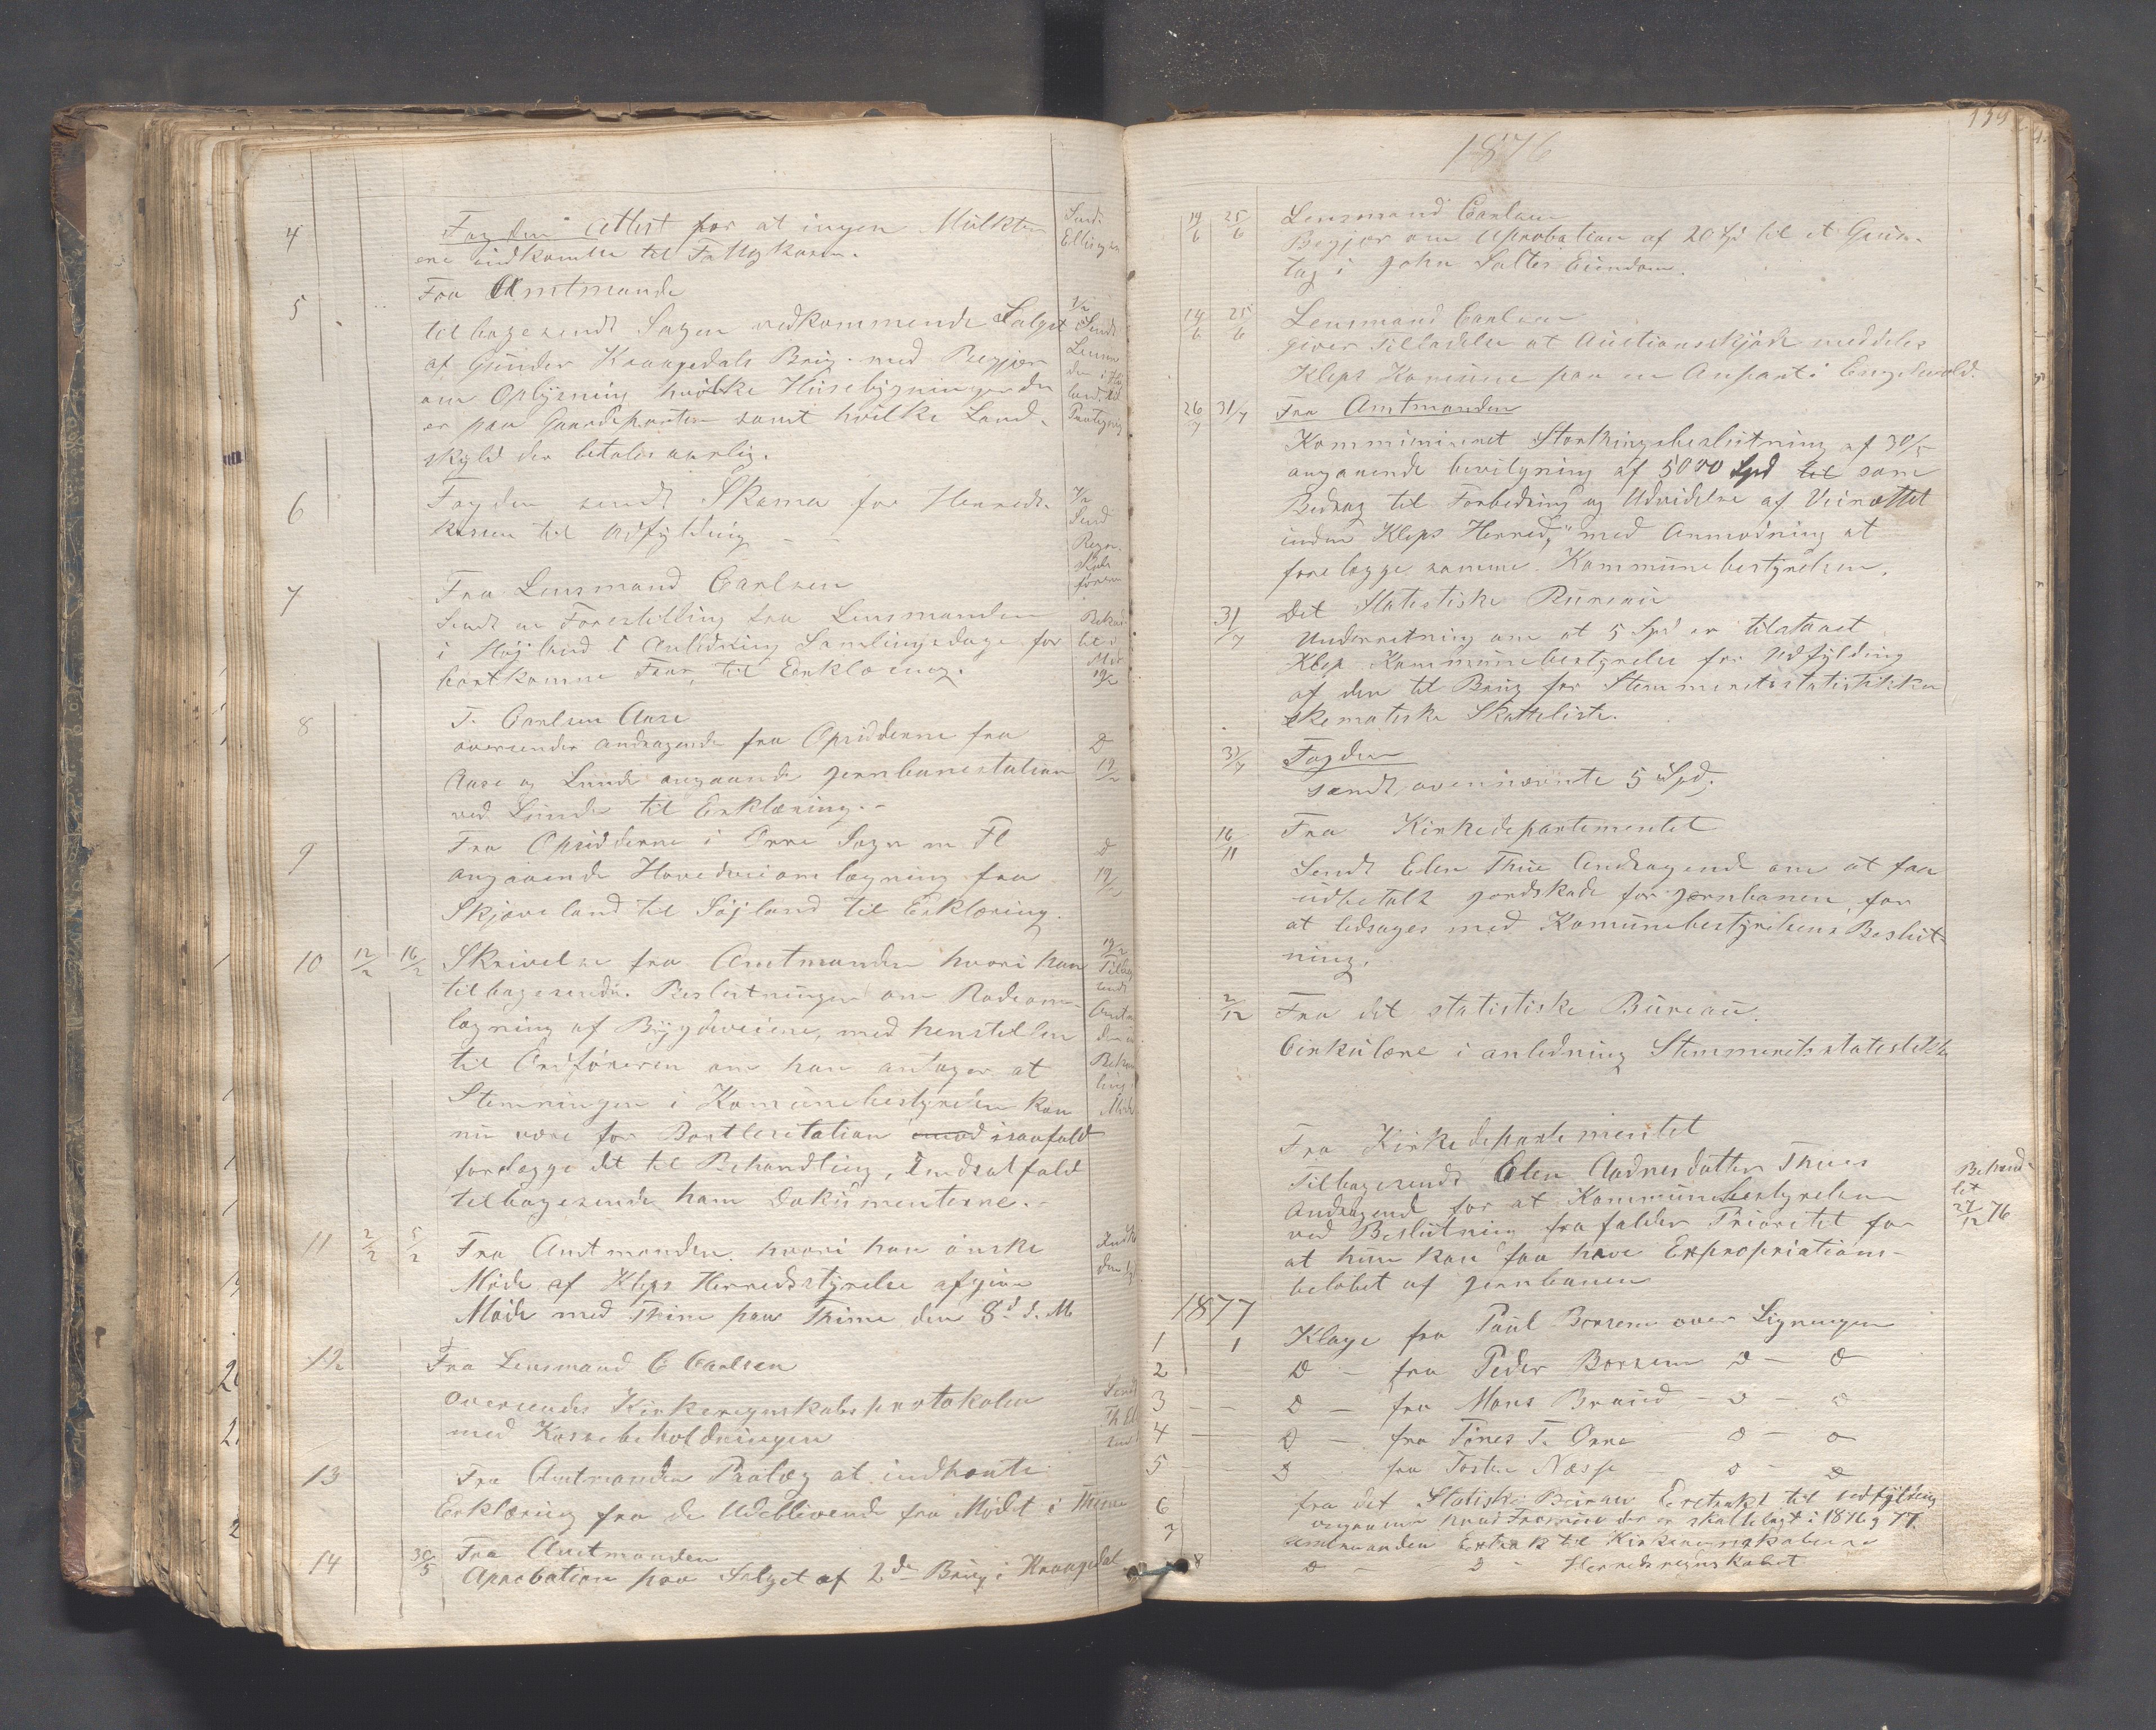 4 Fogden Attest for at ingen Mülkter
ere indkomne til Fattigkassen.
5 Fra Amtmande
tilbagesendt Sagen vedkommende Salget
af Gunder Kraagedals Brüg med Begjær
om Oplysning hvilke Hüsebygninger der
er paa Gaardeparten samt hvilke Land-
skyld der betales aarlig.
6 Fogden sendt Skema for Herreds-
kassen til Udfylding
7 Fra Lensmand Carlsen
Sendt en Forestilling fra Lensmanden
i Høiland i Anledning Samlingsdage for
bortkomne Faar, til Erklæring.
8 T. Carlsen Aase
oversender andragende fra Opsidderne fra
Aase og Lünde angaaende Jernbanestation
ved Lünde til Erklæring.-
9 Fra Opsidderne i Orre Sogn m Fl
angaaende Hovedveiomlægning fra
Skjæveland til Søjland til Erklæring.
10 12/2 16/2 Skrivelse fra Amtmanden hvori han
tilbagesender Beslutningen om Rodeom-
lægning af Bygdeveiene, med henstillen
til Ordføreren om han antager at
Stemningen i Komünebestyrelsen kan
nü være for Bortlicitation isaafald
forelægge det til Behandling, Imodsatfald
tilbagesende ham Dokümenterne.-
11 2/2 5/2 Fra Amtmanden hvori han ønske
Møde af Kleps Herredsstyrelse afgive
Møde med Thime paa Thime den 8d d. M
12 Fra Lensmand C Carlsen
oversendes Kirkeregnskabsprotokolen
med Kassebeholdningen
13 Fra Amtmanden Paalæg at indhente
Erklæring fra de Udeblivende fra Mødet i Thime
14 30/5 Fra Amtmanden
Aprobation paa Salget af 2de Brüg i Kraagedal
1876
139
14/6 25/6 Lensmand Carlsen
Begjær om Aprobation af 20 Spd til et Grüs-
tag i John Saltes Eiendom.
14/6 25/6 Lensmand Carlsen
giver Tilladelse at Aüctionsskjøde meddeles
Kleps Komüne paa en Anpart i Engelsvold.
26/7 31/7 Fra Amtmanden
Kommüniceret Storthingsbeslutning af 30/5
angaaende bevilgning af 5000 Spd til som
Bidrag til Forbedring og Udvidelse af Veinættet
inden Kleps Herred," med Anmodning at
forelægge samme Kommünebestyrelsen.
31/7 Det Statistiske Büreaü
Underretning om at 5 Spd er tilstaaet
Klep Kommünebestyrelse for Udfylding
af den til Brüg for Stemmeretsstatistikken
skematiske Skatteliste.
31/7 Fogden
sendt ovennævnte 5 Spd;
16/11 Fra Kirkedepartementet
Sendt Elen Thüe Andragende om at faa
üdbetalt Jordskade for Jernbanen, for
at ledsages med Komünebestyrelsens Beslüt-
ning.
2/12 Fra det statistiske Büreaü.
Cirkülære i anledning Stemmeretsstatestikk
Fra Kirkedepartementet
Tilbagesendt Elen Aadnesdatter Thües
Andragend for at Kommünebestyrelsen
ved Beslütning frafalder Prioritet for
at hün kan faa hæve Expropriations-
beløbet af Jernbanen
Behand-
let
27/12 76
1877
1 1 Klage fra Paül Borsem over Ligningen
2 D - fra Peder Borsem D - D
3 D - fra Mons Braüd - D - D
4 D - fra Tønes T. Orre D - D
5 D fra Tosten Næsse D - D
6 fra det Statiske Büreaü Exstrakt til üdfylding
angaaende hvad Formüe der er skattelagt i 1876 g 77.
7 Amtmanden Extrakt til Kirkeregnskaberne
8 D - D - Herredsregnskabet